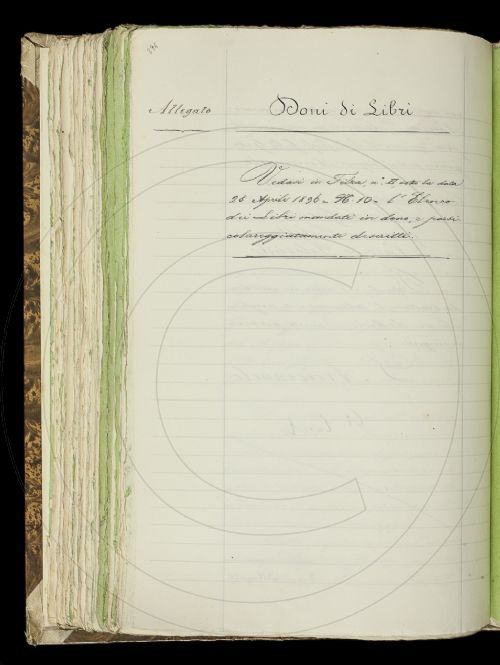 Allegato
Doni di Libri
Vedasi in Filza n° II sotto la data
26 Aprile 1896 - N. 10 - l'Elenco
dei Libri mandati in dono, e parti
colareggiatamente descritti.